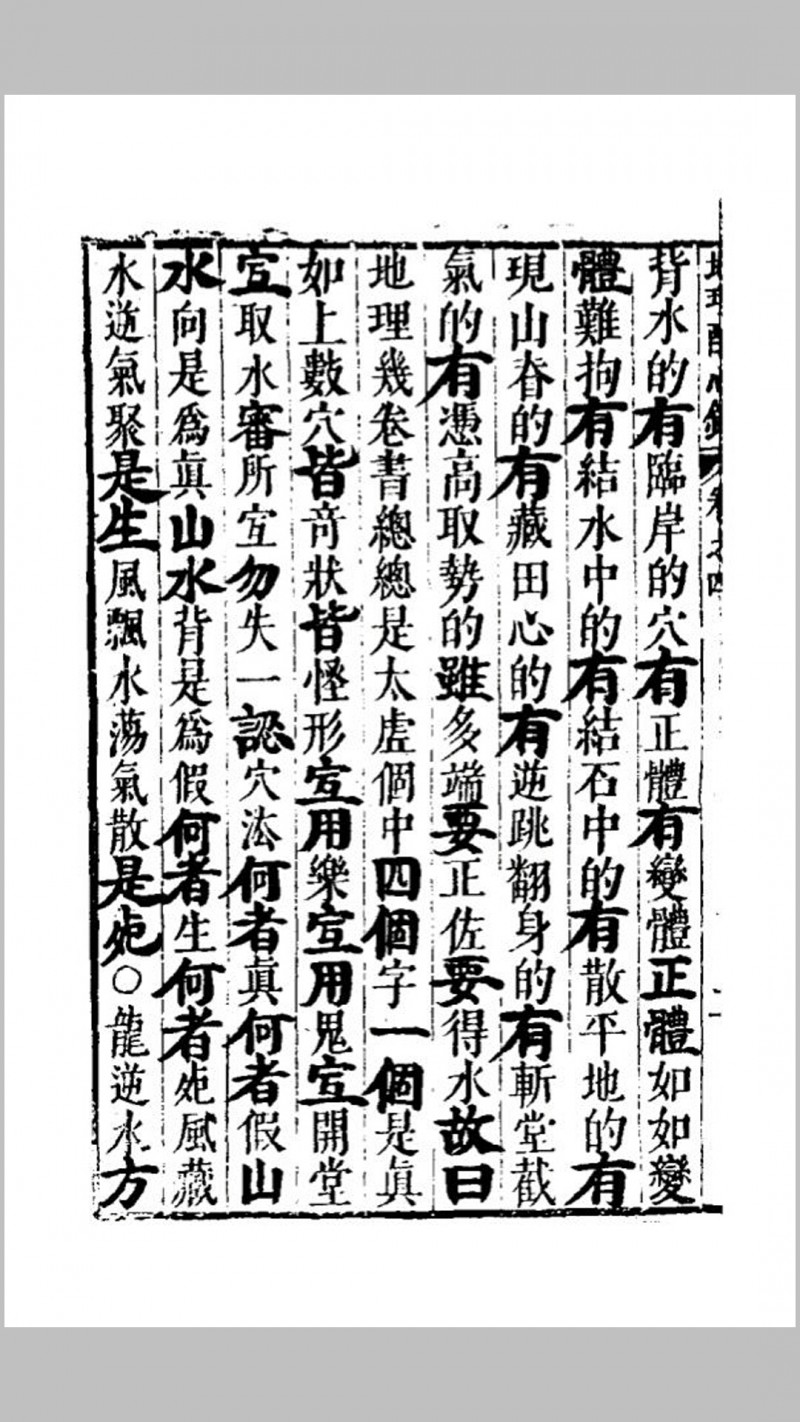 地理醒心錄 卷之四
背水的有臨岸的穴有正體有變體正體如如變
體難拘有結水中的有結石中的有散平地的有
現山脊的有藏田心的有逆跳翻身的有斬堂截
氣的有憑高取勢的雖多端要正佐要得水故曰
地理幾卷書總總是太虛個中四個字一個是眞
如上數穴皆竒狀皆怪形宜用樂宜用鬼宜開堂
宜取水審所宜勿失一認穴法何者眞何者假山
水向是爲眞山水背是爲假何者生何者死風藏
水逆氣聚是生風飄水蕩氣散是死○龍逆水方